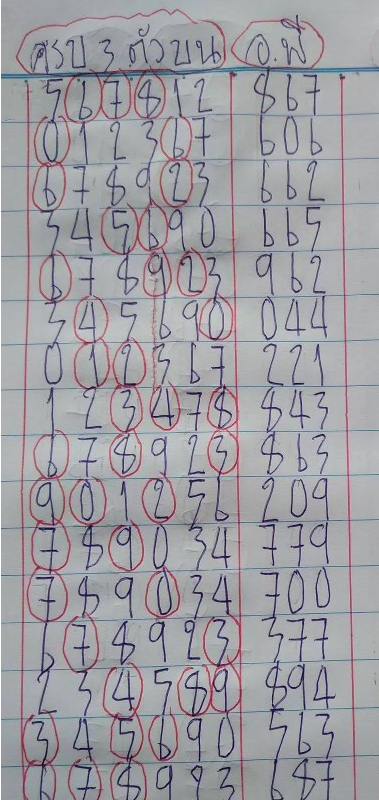 ครบ 3 ตัวบน อ.พี
567812 867
012367 606
678923 662
345690 665
678923 962
345690 044
012367 221
123478 843
678923 863
901256 209
789034 779
789034 700
678923 377
234589 894
345690 563
678923 687